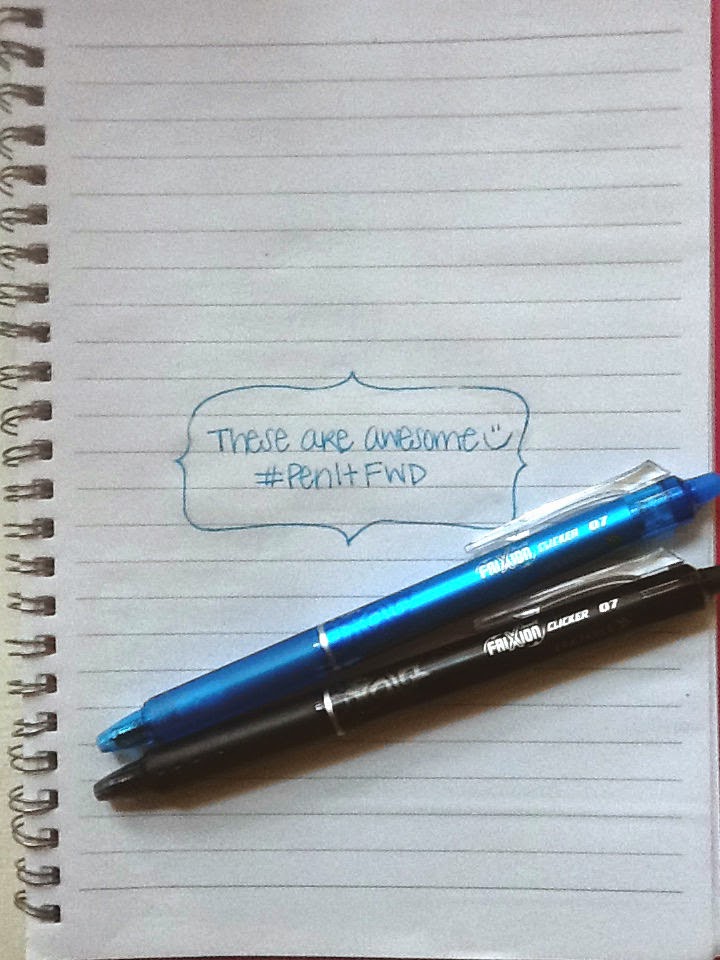 These are awesome
#PenItFWD
FRIXION CLICKER 07
FRIXION CLICKER 07